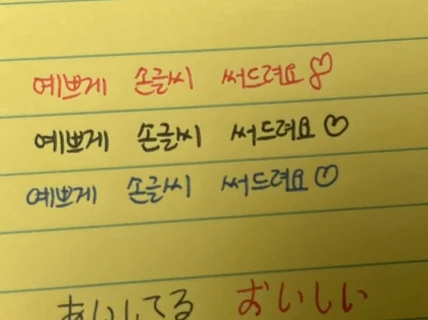 예쁘게 손글씨 써드려요♡
예쁘게 손글씨 써드려요♡
예쁘게 손글씨 써드려요♡
あいしてる おいしい